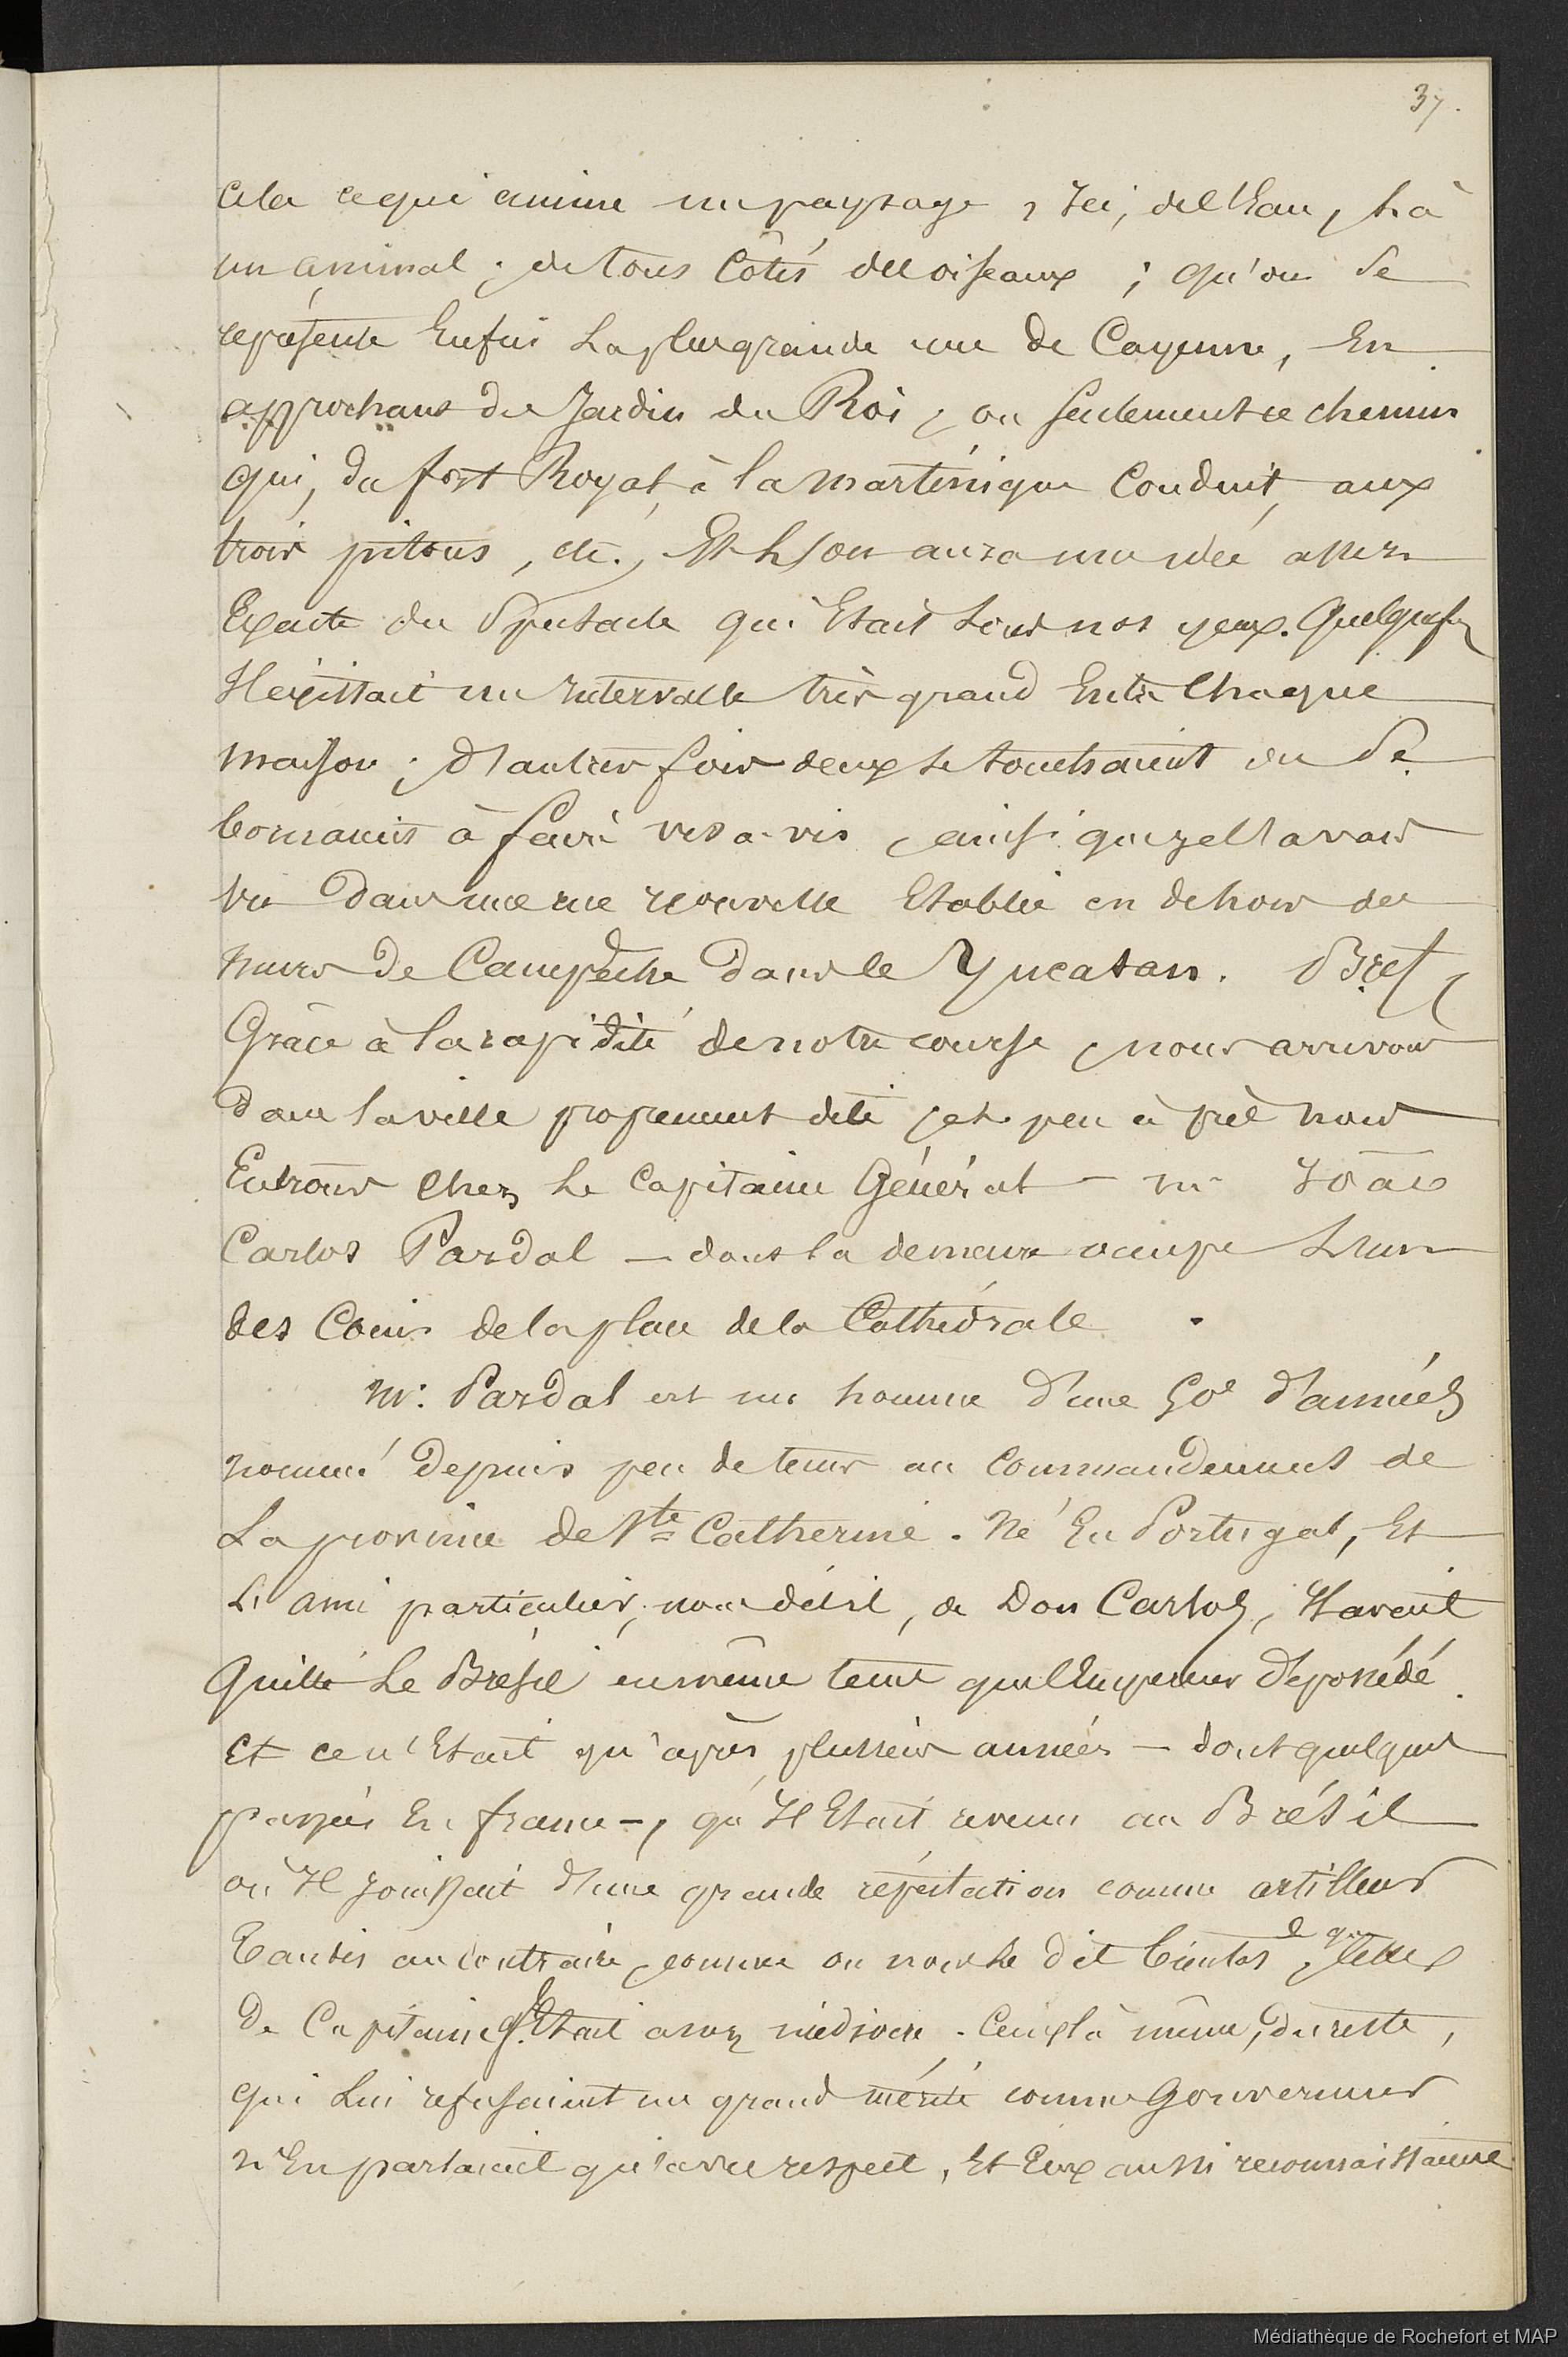 37.
cela ce qui anime un paysage, Ici, de l'Eau, là
un animal ; de tous Côtés des oiseaux ; qu'on se
représente Enfin La plus grande rue de Cayenne, En
approchant du Jardin du Roi, ou seulement ce chemin
qui, du fort Royal, à la Martinique Conduit, aux
trois pitons, etc., Et L'on aura une idée assez
Exacte du Spectacle qui Etait sous nos yeux. Quelquefois
Il existait un Intervalle très grand Entre Chaque
maison ; D'autres fois deux se touchaient ou Se
bornaient à faire vis-à-vis, ainsi que je l'avais
vu Dans une rue nouvelle Etablie en dehors des
murs de Campêche Dans le Yucatan. Bref,
Grâce à la rapidité de notre course, nous arrivons
Dans la ville proprement dite, et peu après nous
Entrons Chez Le Capitaine Général — Mr Joāo
Carlos Pardal — dont la demeure occupe L'un
des Coins de la place de la Cathédrale.
Mr. Pardal est un homme D'une 50e D'années
nommé Depuis peu de tems au Commandement de
La province de Ste Catherine. Né En Portugal, Et
L'ami particulier, nous dit-il, de Don Carlos, Il avait
Quitté Le Brésil en même tems que l'Empereur Dépossédé
Et ce n'Etait qu'après plusieurs années — dont quelques
passées En france —, qu'Il Etait revenu au Brésil
où Il jouissait D'une grande réputation comme artilleur
Tandis au contraire, comme on nous le dit bientôt, que celle
De Capitaine Gl Etait assez médiocre. Ceux là même, Du reste,
qui Lui refusaient un grand mérite comme Gouverneur
n'En parlaient qu'avec respect, Et Eux aussi reconnaissaient
Médiathèque de Rochefort et MAP